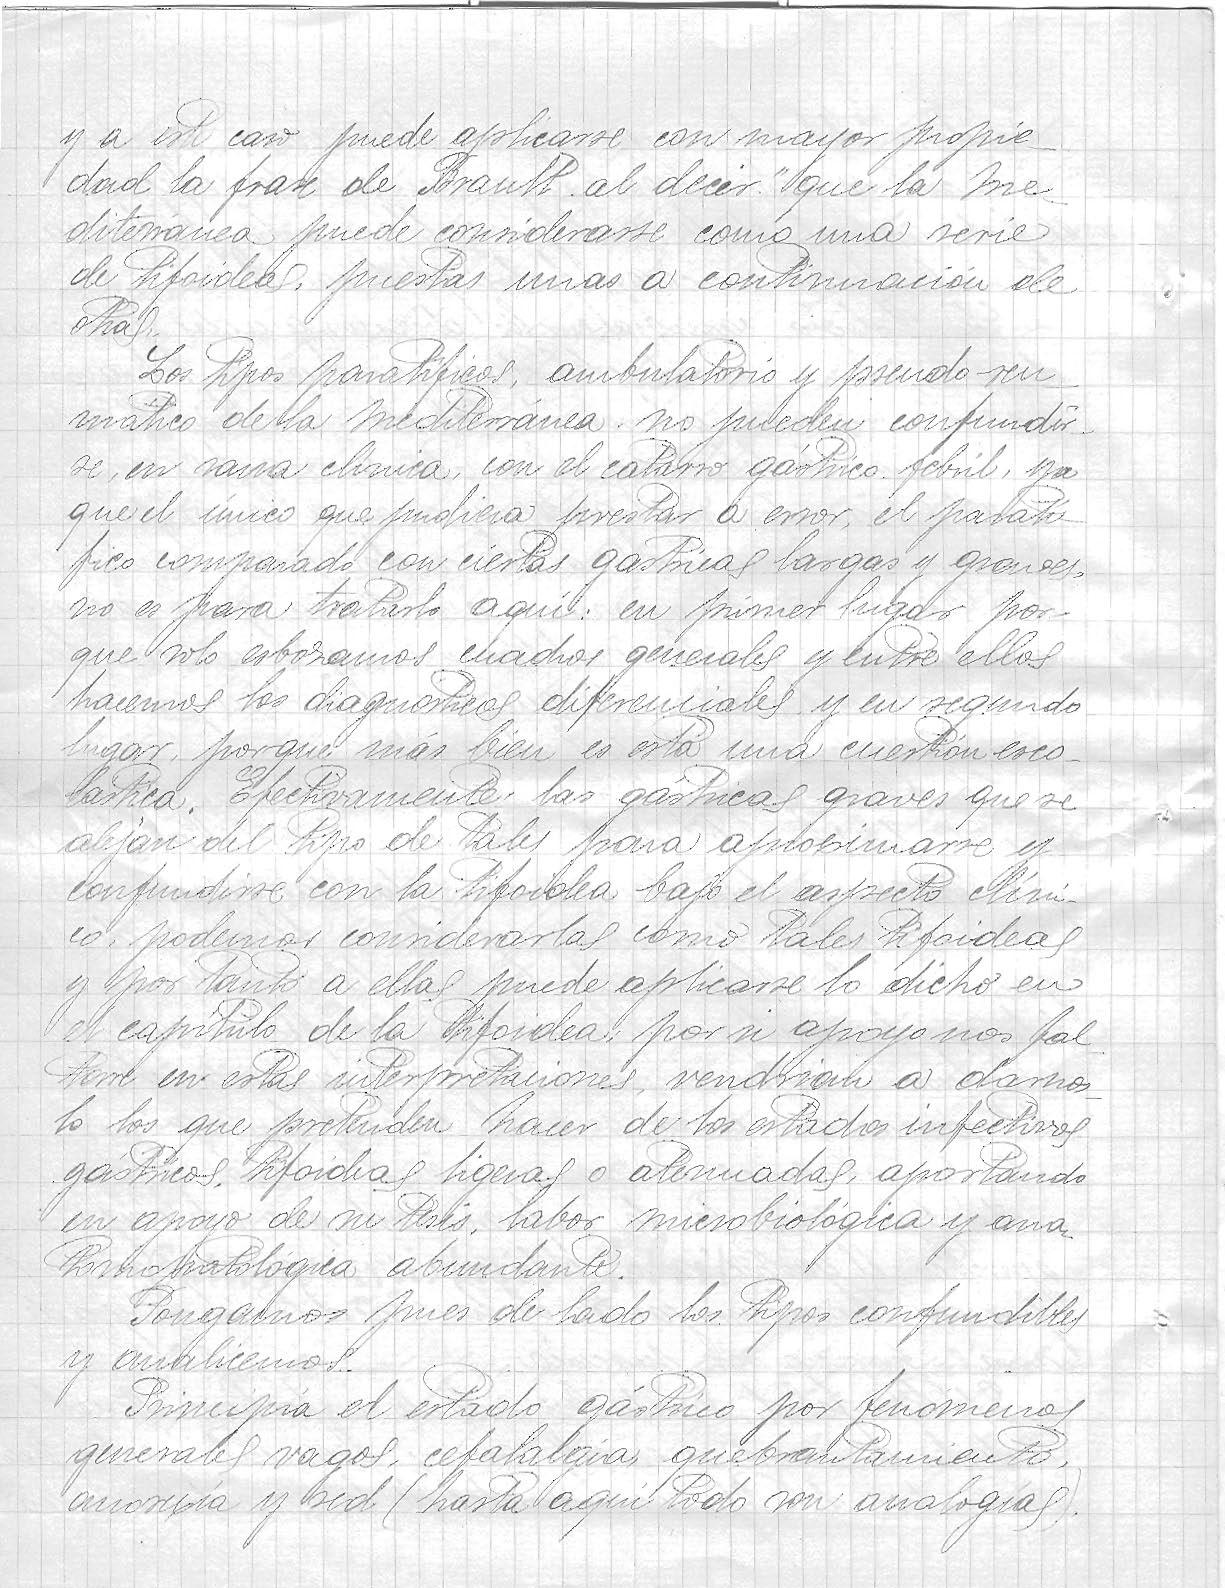 y a este caso puede aplicarse con mayor propie-
dad la frase de Brault al decir "que la Me-
diterránea puede considerarse como una serie
de tifoideas, puestas unas a continuación de
otras.
Los tipos paratíficos, ambulatorio y pseudo-reu-
mático de la Mediterránea no pueden confundir-
se, en sana clínica, con el catarro gástrico febril, ya
que el único que pudiera prestar a error, el paratí-
fico comparado con ciertas gástricas largas y graves,
no es para tratarlo aquí: en primer lugar por-
que solo esbozamos cuadros generales y entre ellos
hacemos los diagnósticos diferenciales y en segundo
lugar, porque más bien es esta una cuestión esco-
lástica. Efectivamente: las gástricas graves que se
alejan del tipo de tales para aproximarse y
confundirse con la tifoidea bajo el aspecto clíni-
co, podemos considerarlas como tales tifoideas
y por tanto a ellas puede aplicarse lo dicho en
el capítulo de la tifoidea; por si apoyo nos fal-
tare en estas interpretaciones, vendrían a darnos-
lo los que pretenden hacer de los estados infectivos
gástricos, tifoideas ligeras o atenuadas, aportando
en apoyo de su tesis, labor microbiológica y ana-
tomopatológica abundante.
Pongamos pues de lado los tipos confundibles
y analicemos.
Principia el estado gástrico por fenómenos
generales vagos, cefalalgia, quebrantamiento,
anorexia y sed (hasta aquí todo son analogías).